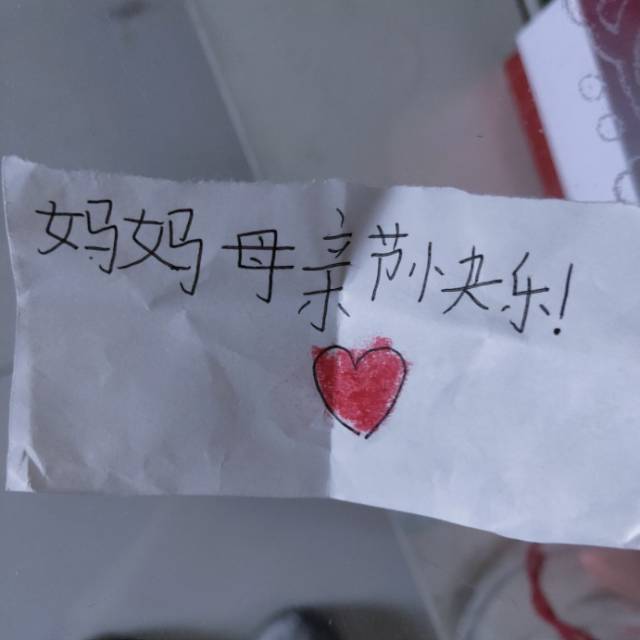 妈妈母亲节快乐!